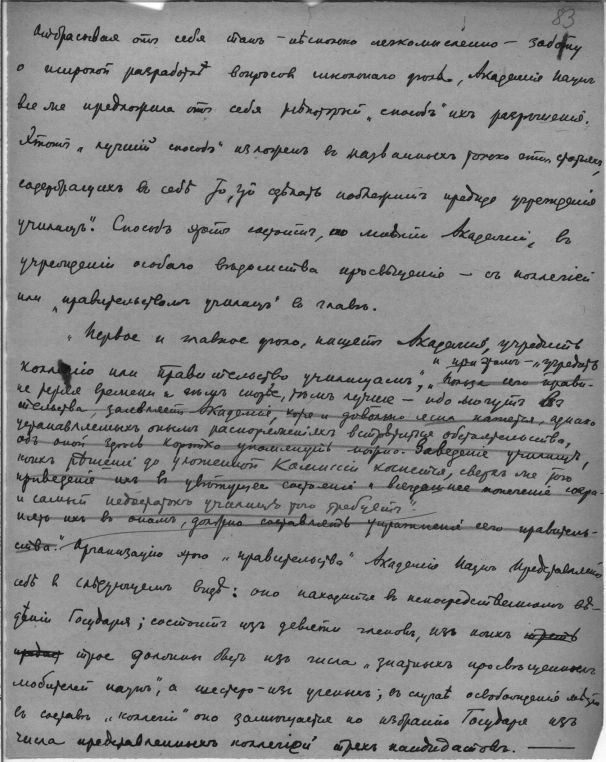 83
Отбрасывая отъ себя такъ – нѣсколько легкомысленно – заботу
о широкой разработкѣ вопросовъ школьнаго дѣла, Академія Наукъ
все же предложила отъ себя нѣкоторый „способъ" ихъ разрѣшенія.
Этотъ „лучшій способъ" изложенъ въ названныхъ только что статьяхъ,
содержащихъ въ себѣ то, „что сдѣлать надлежитъ прежде учрежденія
училищъ". Способъ этотъ состоитъ, по мнѣнію Академіи, въ
учрежденіи особаго вѣдомства просвѣщенія – съ коллегіей
или „правительствомъ училищъ" во главѣ.
„Первое и главное дѣло, пишетъ Академія, учредить
коллегію или правительство училищамъ", и при этомъ – „учредить
„Польза сего прави-
не теряя времени и чѣмъ скорѣе, тѣмъ лучше – ибо могутъ въ
тельства, заявляетъ Академія, хотя и довольно ясна кажется, однако
устанавливаемыхъ онымъ распоряженіяхъ встрѣтиться обстоятельства,
объ оной здѣсь коротко упомянуть можно. Заведеніе училищъ,
коихъ рѣшеніе до уложенной Комиссіи коснется, сверхъ же того
приведеніе ихъ въ цвѣтущее состояніе и всегдашнее попеченіе сохра-
и самый недостатокъ училищъ того требуетъ".
нять ихъ въ ономъ, должно составлять упражненія сего правитель-
ства". Организацію этого „правительства" Академія Наукъ представляетъ
себѣ въ слѣдующемъ видѣ: оно находится въ непосредственномъ вѣ-
дѣніи Государя; состоитъ изъ девяти членовъ, изъ коихъ
трое должны быть изъ числа „знатныхъ просвѣщенныхъ
любителей наукъ", а шестеро – изъ ученыхъ; въ случаѣ освобожденія мѣста
въ составѣ „коллегіи" оно замѣщается по избранію Государя изъ
числа представленныхъ коллегіей трехъ кандидатовъ. —